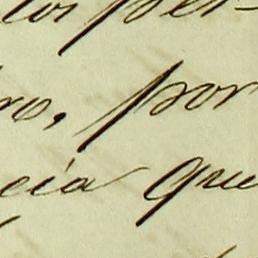 per-
ro, por
cia que